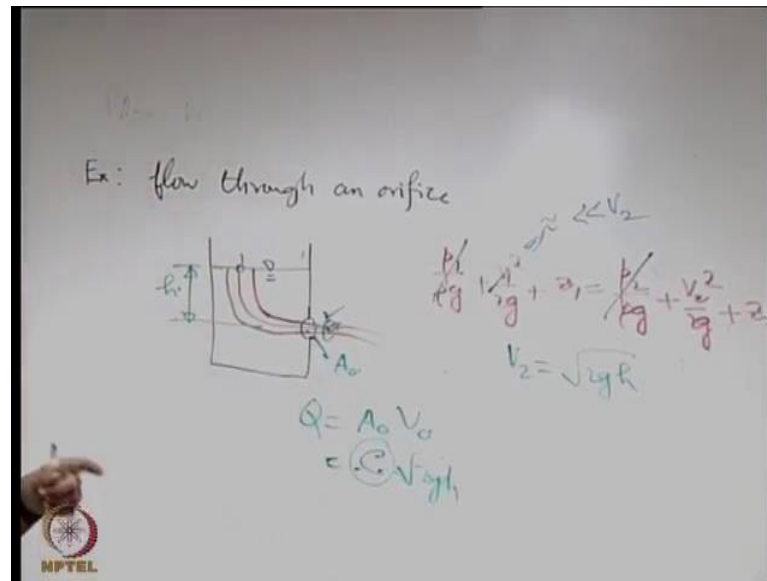 Ex: flow through an orifice
≈ << V₂
p₁/ρg + V₁²/2g + z₁ = p₂/ρg + V₂²/2g + z
h
1
A₀
V₂ = √2gh
Q = A₀ V₀
= C √2gh
NPTEL